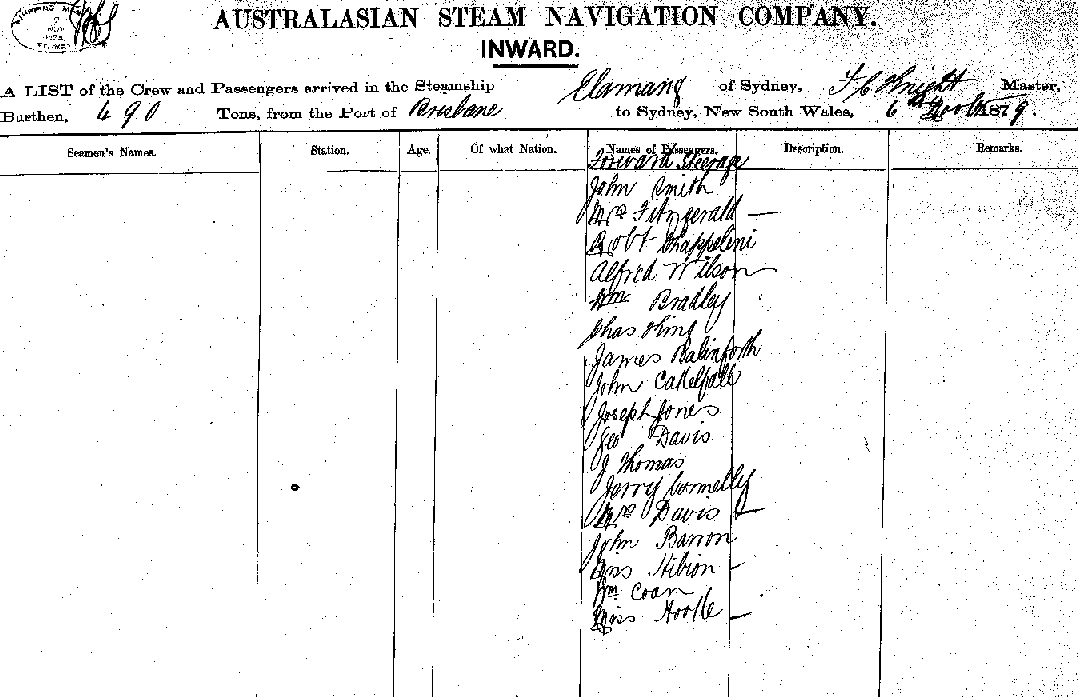 AUSTRALASIAN STEAM NAVIGATION COMPANY.
INWARD.
A LIST of the Crew and Passengers arrived in the Steamship Elamang of Sydney, Knight Master,
Burthen, 490 Tons, from the Port of Brisbane to Sydney, New South Wales, 6th 1879.
Seamen's Names. Station. Age. Of what Nation. Names of Passengers. Description. Remarks.
Forward Steerage
John Smith
Mrs Fitzgerald —
Robt Chappeleni
Alfred Wilson
Wm Bradley
Chas King
James
John
Joseph Jones
Geo Davis
J Thomas
Jerry Connelly
Mrs Davis —
John Barron
Miss Hibion —
Wm Coan
Miss —